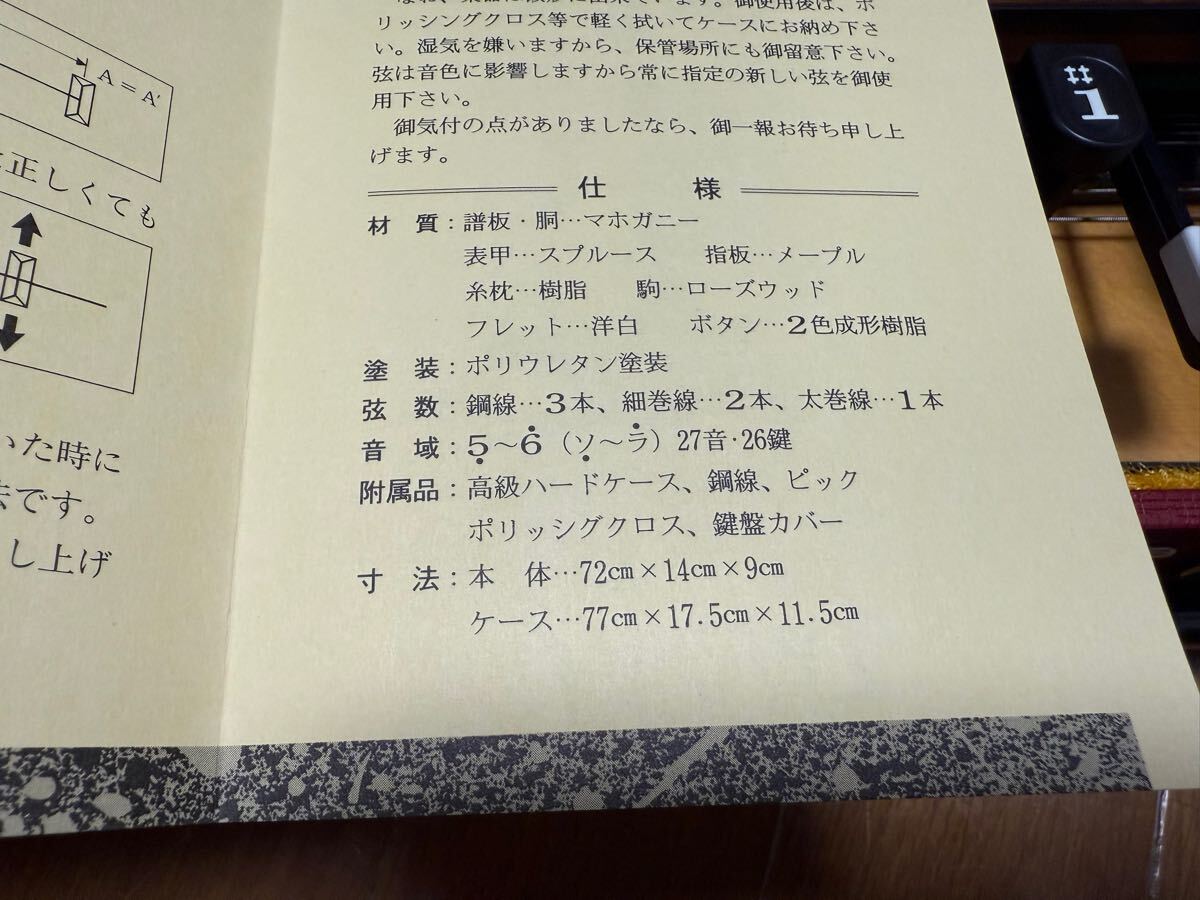 A = A′
正しくても
いた時に
です。
し上げ
リッシングクロス等で軽く拭いてケースにお納め下さ
い。湿気を嫌いますから、保管場所にも御留意下さい。
弦は音色に影響しますから常に指定の新しい弦を御使
用下さい。
御気付の点がありましたなら、御一報お待ち申し上
げます。
仕様
材質：譜板・胴…マホガニー
表甲…スプルース 指板…メープル
糸枕…樹脂 駒…ローズウッド
フレット…洋白 ボタン…2色成形樹脂
塗装：ポリウレタン塗装
弦数：鋼線…3本、細巻線…2本、太巻線…1本
音域：5̣〜6̇（ソ̣〜ラ̇）27音·26鍵
附属品：高級ハードケース、鋼線、ピック
ポリッシングクロス、鍵盤カバー
寸法：本体…72㎝×14㎝×9㎝
ケース…77㎝×17.5㎝×11.5㎝
#1